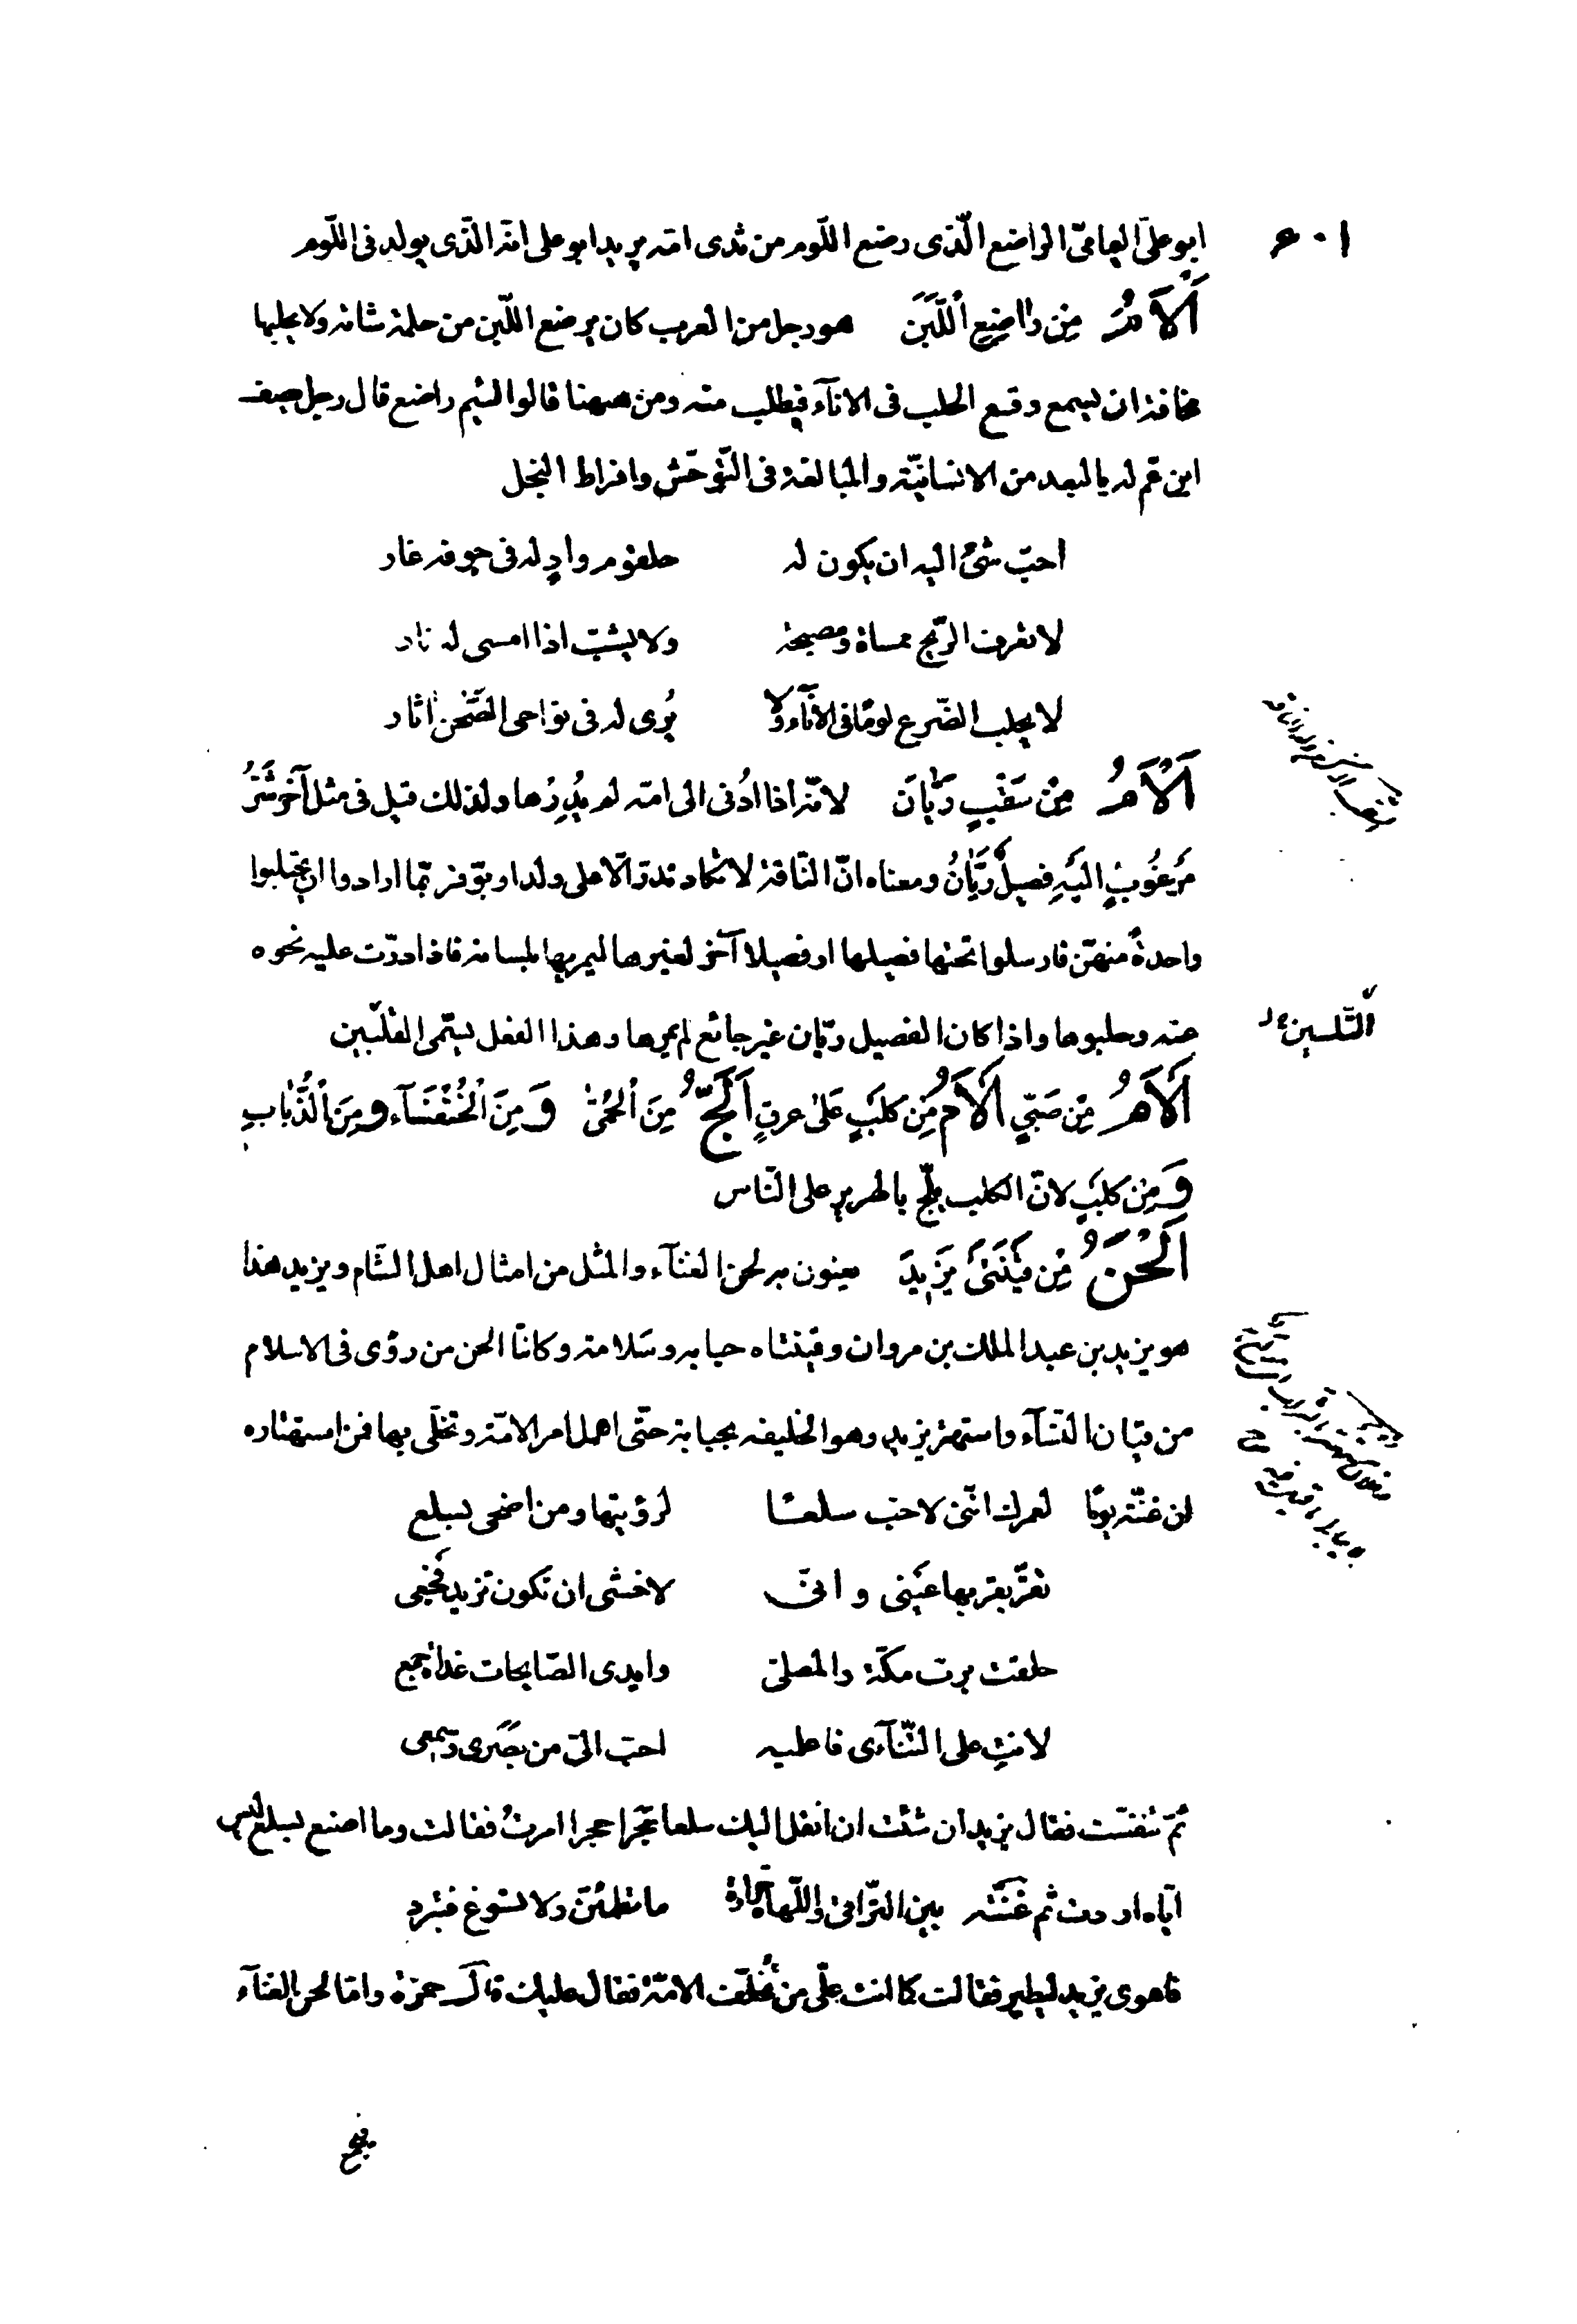 ٦٠١
ابو علىّ اليمامىّ الراضع الّذى رضع اللّوم من ثدى امّه يريد ابو على انّه الّذى يولد فى اللّوم
اَلْأَمُ مِنْ رَاضِعِ اللَّبَنِ هو رجل من العرب كان يرضع اللّبن من حلمة شاته ولا يحلبها
مخافة ان يسمع وقع الحلب فى الاناۤء فيطلب منه ومن ههنا قالوا لئيم راضع قال رجل يصف
ابن عمّ له بالبعد من الانسانيّة والمبالغة فى التّوحّش وافراط البخل
احبّ شئ اليه ان يكون له حلقوم وادٍ له فى جوفه غار
لا تعرف الرّيح ممساة ومصبحة ولا يشبّ اذا امسى له نار
لا يحلب الضّرع لومًا فى الاناۤء ولا يُرى له فى نواحى الصّحن اثار
اَلْأَمُ مِنْ سَقْبٍ رَيَّانَ لانّه اذا اُدنى الى امّه لم يُدِرّها ولذلك قيل فى مثل آخر شَرُّ
مَرغُوبٍ اليَهِ فصيلٌ رَيَّانُ ومعناه انّ النّاقة لا تكاد تدرّ الّا على ولد او بوّ فربّما ارادوا ان يحتلبوا
واحدةً منهنّ فارسلوا تحتها فصيلها او فصيلا آخر لغيرها ليمريها بلسانه فاذا درّت عليه نحوه
عنه وحلبوها واذا كان الفصيل ريّان غير جائع لم يمرها وهذا الفعل يسمّى الغلبين
التّلسين
اَلْأَمُ مِنْ صَبّيٍ اَلْأَمُ مِن كلبٍ عَلىٰ عرقٍ اَلَجُّ مِنَ اَلحُمّىٰ وَمِنَ اَلْخُنْفَسَاۤء ومِنَ اَلذُّبَابِ
وَمِنْ كلبٍ لانّ الكلب يلجّ بالهرير على النّاس
اَلْحَنُ مِنْ قَيْنَتَىْ يَزِيدَ يعنون به لحن الغناۤء والمثل من امثال اهل الشّام ويزيد هذا
هو يزيد بن عبد الملك بن مروان وقينتاه حبابه وسَلامة وكانتا الحن من رؤى فى الاسلام
من قيان النّساۤء واستهتر يزيد وهو الخليفه بحبابة حتّى اهمل امر الامّة وتخلّى بها فمن استهتاره
ان غنّته يومًا لعمرك انّنى لاحبّ سلعـًا لرؤيتها ومن اضحى بسلع
تقرّ بقربها عَينى وانّى لاخشى ان تكون تريد فَجعى
حلفت بربّ مكّة والمصلّى وايدى السّابحات غداة جمع
لانتِ على التّناۤءى فاعليه احبّ الىّ من بصَرى وسمعى
ثمّ تنفّست فقال يزيد ان شئت ان انقل اليك سلعا حَجَرا حجرا امرتُ فقالت وما اصنع بسلع ليس
ايّاه اردت ثم غَنّته بين التّراقى واللّهاة حرارة ما تطمئنّ ولا تسوغ فتبرد
فاهوى يزيد ليطير فقالت كما انت على من تُخلّف الامّة فقال عليك قال حمزة وامّا لحن الغناۤء